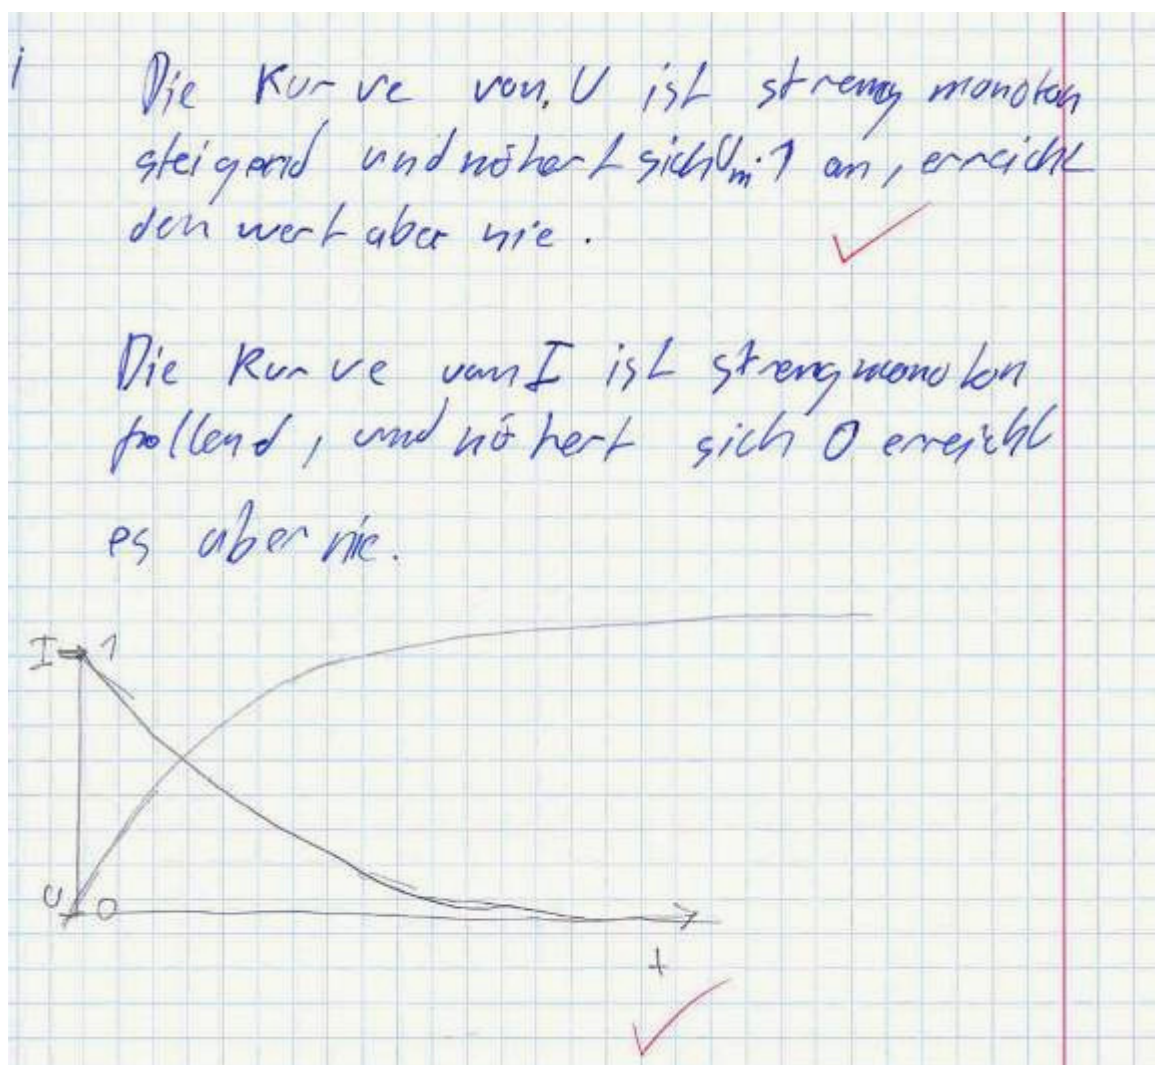 i
Die Kurve von U ist streng monoton
steigend und nähert sich Um·1 an, erreicht
den wert aber nie.
Die Kurve von I ist streng monoton
fallend, und nähert sich 0 erreicht
es aber nie.
I 1
U 0
t